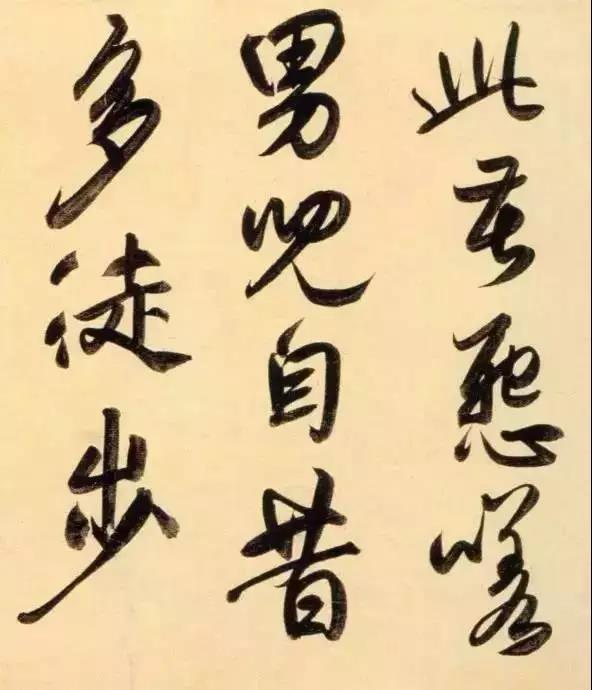 此苦怨嗟
男兒自昔
多徒步